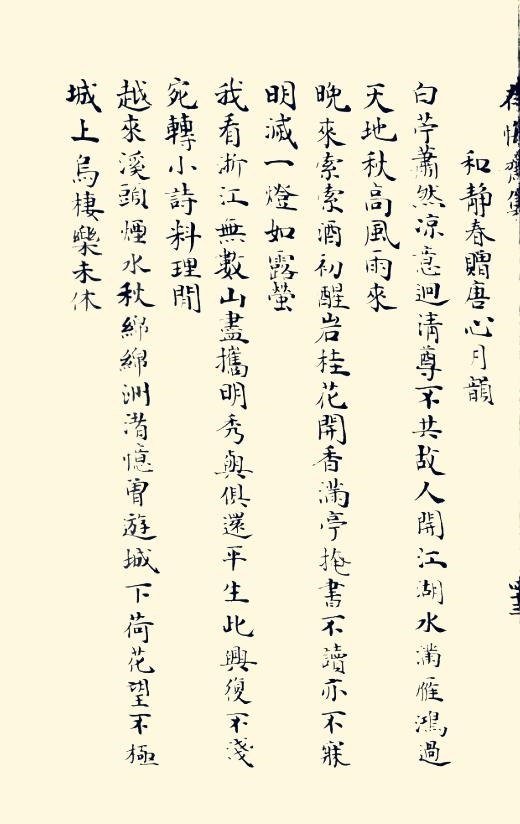 和靜春贈唐心月韻
白苧蕭然凉意迴清尊不共故人開江湖水滿雁鴻過
天地秋高風雨來
晚來索索酒初醒岩桂花開香滿亭掩書不讀亦不寐
明滅一燈如露螢
我看浙江無數山盡攜明秀與俱還平生此興復不淺
宛轉小詩料理閒
越來溪頭煙水秋綿綿洲渚憶曾遊城下荷花望不極
城上烏棲樂未休